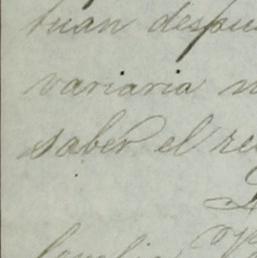 tuan despue
variaria n
saber el re